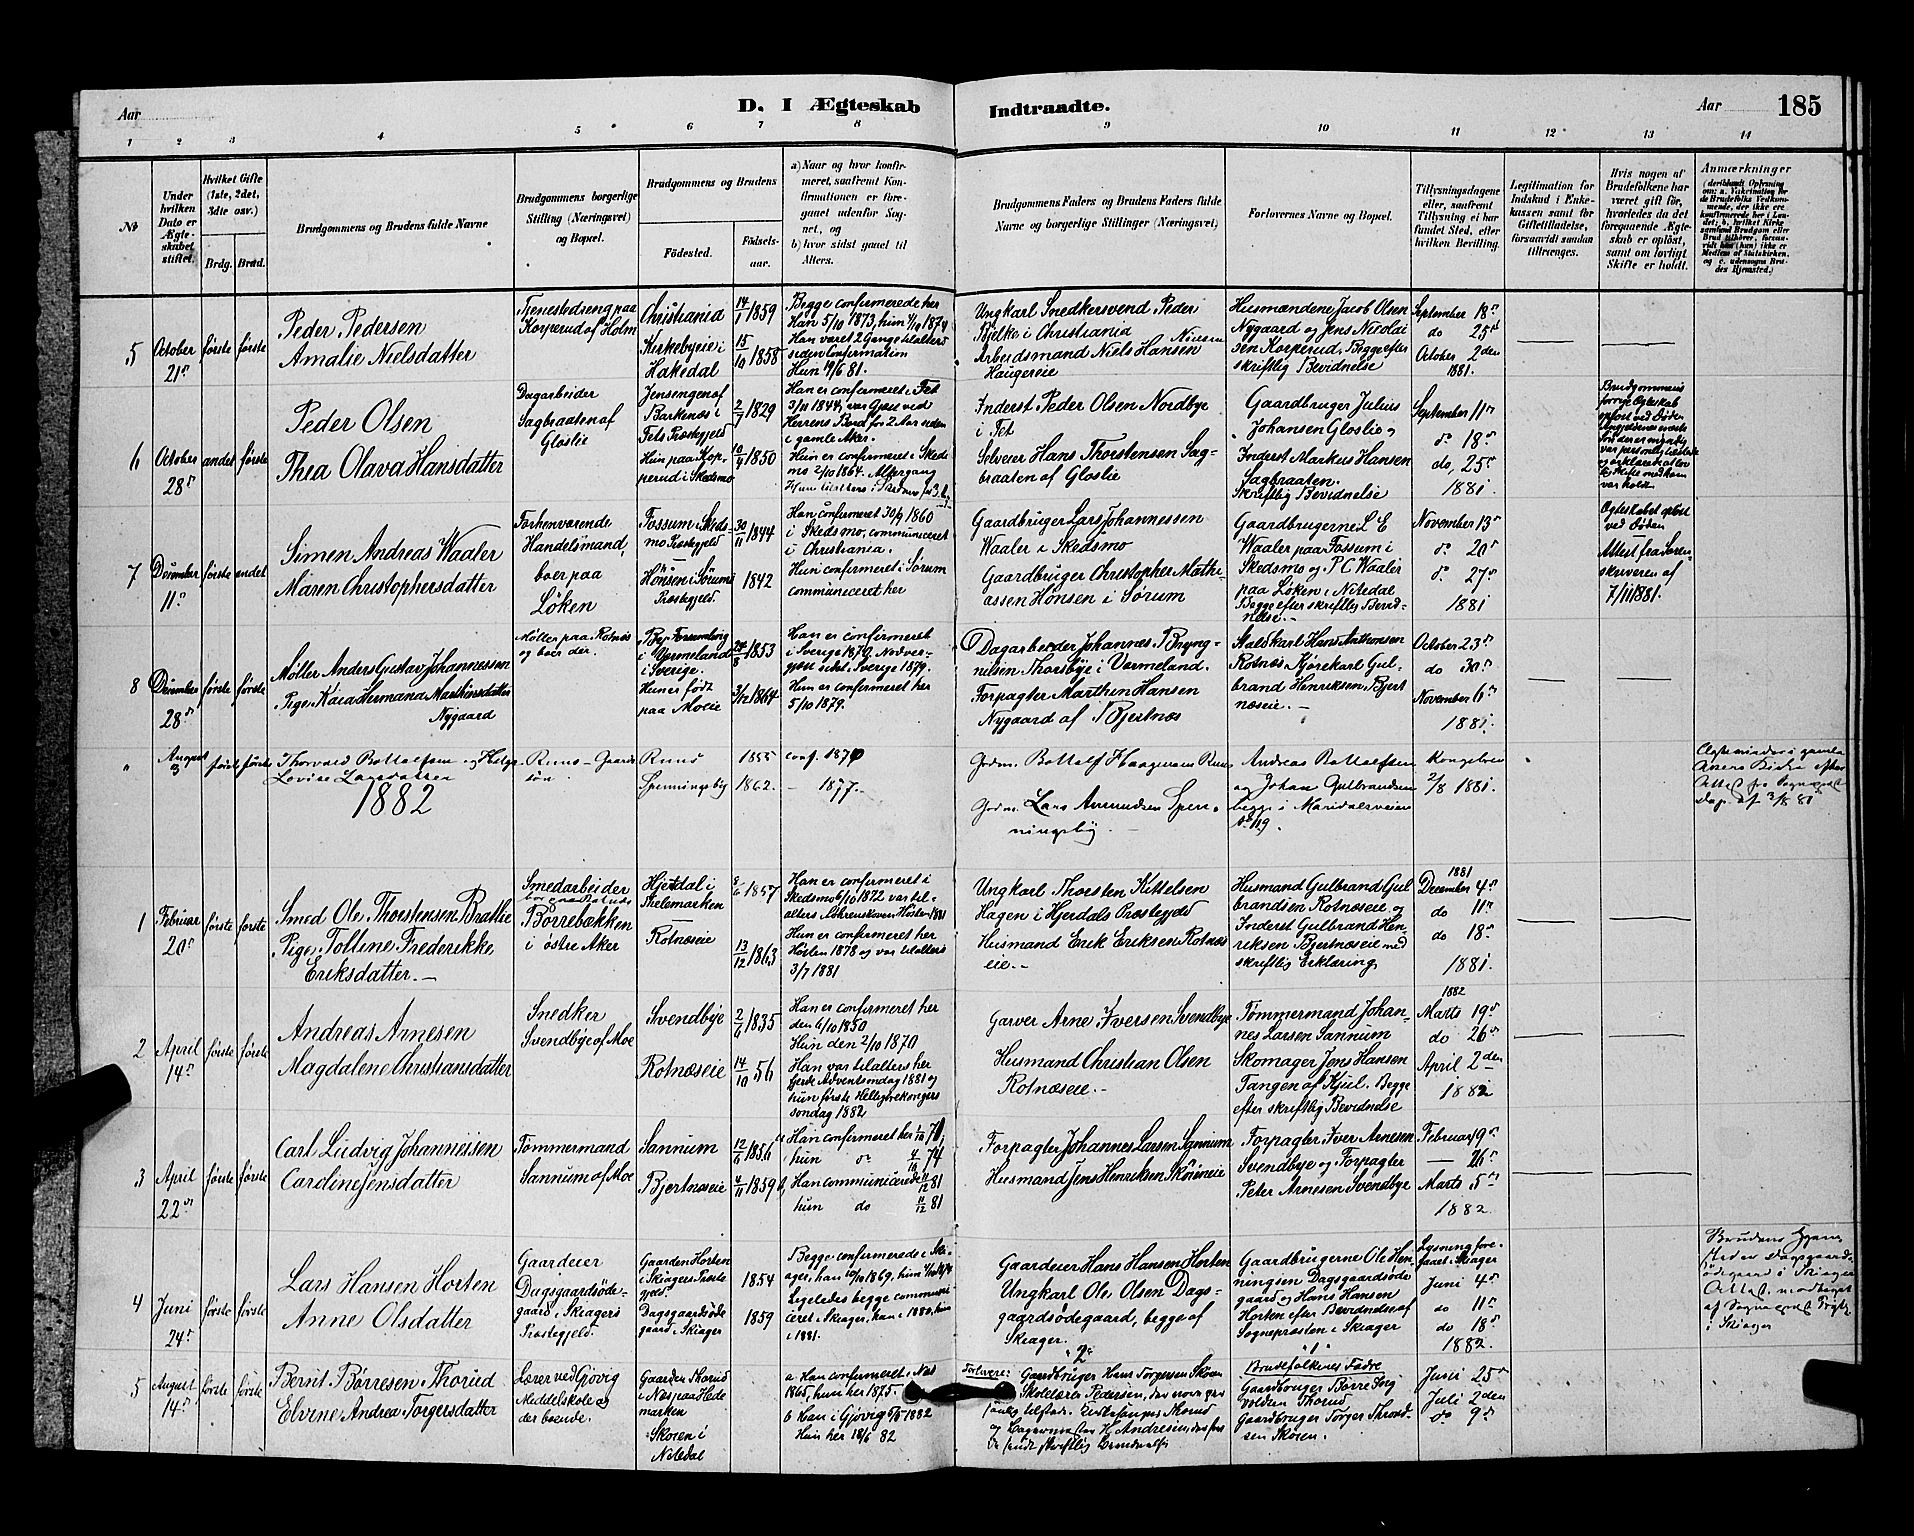 Aar
D. I Ægteskab
Indtraadte.
Aar
185
1 2 3 4 5 6 7 8 9 10 11 12 13 14
№
Under
hvilken
Dato er
Ægte-
skabet
stiftet.
Hvilket Gifte
(1ste, 2det,
3die osv.)
Brdg.
Brud.
Brudgommens og Brudens fulde Navne
Brudgommens borgerlige
Stilling (Næringsvei)
og Bopæl.
Brudgommens og Brudens
Fødested.
Fødsels-
aar.
a) Naar og hvor konfir-
meret, saafremt Kon-
firmationen er fore-
gaaet udenfor Sog-
net, og
b) hvor sidst gaaet til
Alters.
Brudgommens Faders og Brudens Faders fulde
Navne og borgerlige Stillinger (Næringsvei)
Forlovernes Navne og Bopæl.
Tillysningsdagene
eller, saafremt
Tillysning ei har
fundet Sted, efter
hvilken Bevilling.
Legitimation for
Indskud i Enke-
kassen samt for
Giftetilladelse,
forsaavidt saadan
tiltrænges.
Hvis nogen af
Brudefolkene har
været gift før,
hvorledes da det
foregaaende Ægte-
skab er opløst,
samt om lovligt
Skifte er holdt.
Anmærkninger
5
October
21de
første
første
Peder Pedersen
Amalie Nielsdatter
Tjenestedreng paa
Korperud af Holm
Christiania
Kirkebyeie i
Hakedal
14/1 1859
15/10 1858
Begge confirmerede her
Han 5/10 1873, hun 4/10 1874
Han varet 2 Gange tilalters
siden Confirmation
Ungkarl Snedkersvend Peder
Bjelke i Christiania
Arbeidsmand Niels Hansen
Haugereie
Husmændene Jacob Olsen
Nygaard og Jens Nicolai
sen Korperud. Begge efter
skriftlig Bevidnelse
September 18de
do 25de
October 2den
1881.
6
October
28de
andet
første
Peder Olsen
Thea Olava Hansdatter
Dagarbeider
Sagbraaten af
Gloslie
Jensengen af
Barkenæs i
Fets Præstegjeld
Hun paa Kop-
perud i Skedsmo
2/7 1829
10/4 1850
Han er confirmeret i Fet
3/11 1844, var Gjæst ved
Herrens Bord for 2 Aar siden
i gamle Aker.
Hun er confirmeret i Skeds
mo 2/10 1864. Altergang
Inderst Peder Olsen Nordbye
i Fet
Selveier Hans Thorstensen Sag-
braaten af Gloslie
Gaardbruger Julius
Johansen Gloslie og
Inderst Markus Hansen
Sagbraaten.
Skriftlig Bevidnelse
September 11te
do 18de
do, 25de
1881.
Brudgommens
forrige Ægteskab
opløst ved Døden
7
December
11te
første
andet
Simen Andreas Waaler
Maren Christophersdatter
Forhenværende
Handelsmand,
boer paa
Løken
Fossum i Skeds-
mo Præstegjeld
Hønsen i Sørums
Præstegjeld.
30/11 1844
1842
Han confirmeret 30/9 1860
i Skedsmo, communiceret
i Christiania.
Hun confirmeret i Sørum
communiceret her
Gaardbruger Lars Johannessen
Waaler i Skedsmo
Gaardbruger Christopher Mathi-
assen Hønsen i Sørum
Gaardbrugerne L E
Waaler paa Fossum i
Skedsmo og P C Waaler
paa Løken i Nitedal
Begge efter skriftlig Bevid-
nelse.
November 13de
do 20de
do 27de
1881
Ægteskabet opløst
ved Døden
Attest fra Soren-
skriveren af
7/11 1881.
8
December
28de
første
første
Møller Anders Gustav Johannessen
Pige Kaia Hermana Marthinsdatter
Nygaard
Møller paa Rotnæs
og boer der.
i Vermeland
i Sverige.
Hun er født
paa Moeie
24/8 1853
3/12 1864
Han er confirmeret
i Sverige 1870. Nadver-
gjæst sidst i Sverige 1879.
Hun er confirmeret her
5/10 1879.
Dagarbeider Johannes Bryng-
nelsen Thorsbye i Vermeland.
Forpagter Marthin Hansen
Nygaard af Bjertnæs
Staldkarl Hans Anthonsen
Rotnæs, Kjørekarl Gul-
brand Henriksen, Bjert
næseie.
October 23de
do 30de
November 6te
1881.
"
August
3
første
første
Thorvald Bottolfsen
Lovise Larsdatter
Spenningsby
1855
1862.
conf. 1870
- 1877.
Gdm.
Gdm. Lars Amundsen Spen-
ningsby
Andreas Bottolfsen
og Johan Gulbrandsen
begge i Maridalsveien
No 119.
Kongebrev
2/8 1881.
1882
1
Februar
20de
første
første
Smed Ole Thorstensen Bratlie
Pige Tolline Frederikke
Eriksdatter.
Smedarbeider
Børrebækken
i østre Aker
Hjerdal i
Thelemarken
Rotnæseie
1857
13/12 1863
Han er confirmeret i
Skedsmo 6/10 1872 var til-
Hun er confirmeret her
Høsten 1878 og var tilalters
3/7 1881
Ungkarl Thorsten Kittelsen
Hagen i Hjerdals Præstegjeld
Husmand Erik Eriksen Rotnæs
eie.
Husmand Gulbrand Gul
brandsen Rotnæseie og
Inderst Gulbrand Hen-
riksen Bjertnæseie med
skriftlig Erklæring
1881
December 4de
do 11te
do 18de
1881.
2
April
14de
første
første
Andreas Arnesen
Magdalene Christiansdatter
Snedker
Svendbye af Moe
Svendbye
Rotnæseie
2/6 1835
14/10 56
Han er confirmeret her
den 6/10 1850
Hun den 2/10 1870
Han var tilalters her
fjerde Adventsøndag 1881 og
hun første Helligtrekongers
søndag 1882
Garver Arne Iversen Svendbye
Husmand Christian Olsen
Rotnæseie.
Tømmermand Johan-
nes Larsen Sannum
Skomager Jens Hansen
Tangen af Kjul. Begge
efter skriftlig Bevidnelse
1882
Marts 19de
do 26de
April 2den
1882
3
April
22de
første
første
Carl Ludvig Johannessen
Caroline Jensdatter
Tømmermand
Sannum af Moe
Sannum
Bjertnæseie
12/6 1856
4/11 1859
Han confirmeret her 1/10 71,
hun do 4/10 74
Han communicerede 11/12 81
hun do 11/12 81
Forpagter Johannes Larsen Sannum
Husmand Jens Henriksen Skøieneie
Forpagter Iver Arnesen
Svendbye og Forpagter
Peter Arnesen Svendbye
Februar 19de
— 26de
Marts 5te
1882.
4
Juni
24de
første
første
Lars Hansen Horten
Anne Olsdatter
Gaardeier
Dagsgaardsøde-
gaard i Skiagers
Præstegjeld.
Gaarden Horten
i Skiagers Præste
gjeld.
Dagsgaardsøde
gaard i Skiager
1854
1859
Begge confirmerede i Ski-
ager, han 10/10 1869, hun
Ligeledes begge communi
ceret i Skiager, han i 1880, hun
i 1881.
Gaardeier Hans Hansen Horten
Ungkarl Ole Olsen Dags-
gaardsødegaard, begge af
Skiager.
Gaardbrugerne Ole Hen-
ningsen Dagsgaardsøde
gaard og Hans Hansen
Horten efter Bevidnelse af
Sognepræsten i Skiager
Lysning fore-
faaet i Skiager
Juni 4de
do 11te
do 18de
1882.
Brudens Hjem
5
August
14de
første
første
Bernt Børresen Thorud
Elvine Andrea Torgersdatter
Lærer ved Gjøvig
Meddelskole og
der boende.
Gaarden Thorud
i Næs paa Hede
marken
Skøien i
Nitedal
a. Han confirmeret i Næs
1865, hun her 1875.
b Han i Gjøvig 1882
Hun her 18/6 82
Forlovere: Gaardbruger Hans Torgersen Skøien
Brudefolkenes Fædre
Gaardbruger Børre
Thorud
Gaardbruger Torger Thord-
sen Skøien.
Juni 25de
Juli 2den
do 9de